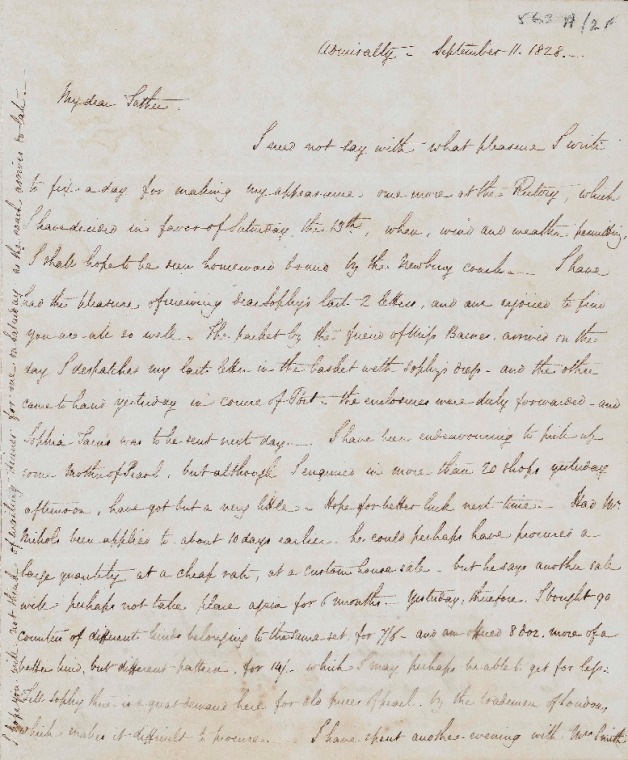 563 A/21
Admiralty - September 11. 1828. -
My dear Father.
I need not say with what pleasure I write
to fix a day for making my appearance once more at the Rectory, which
I have decided in favor of Saturday, the 13th, when, wind and weather permitting,
I shall hope to be seen homeward bound by the Newbury coach. - I have
had the pleasure of receiving dear Sophy's last 2 letters, and am rejoiced to find
you are all so well. - The packet by the friend of Miss Barnes, arrived on the
day I despatched my last letter in the basket with Sophy's dress - and the other
came to hand yesterday in course of Post - the enclosures were duly forwarded - and
Sophia was to be sent next day. - I have been endeavouring to pick up
some Mother of Pearl, but although I enquired in more than 20 shops yesterday
afternoon, have got but a very little - Hope for better luck next time. - Had Mr.
Nichols been applied to about 10 days earlier, he could perhaps have procured a
large quantity at a cheap rate, at a custom house sale - but he says another sale
will perhaps not take place again for 6 months. - Yesterday, therefore, I bought 90
counters of different kinds belonging to the same set, for 7/6 - and am offered 8 doz. more of a
better kind, but different pattern, for 14/- which I may perhaps be able to get for less:
Tell Sophy there is a great demand here for old pieces of pearl, by the tradesmen of London,
which makes it difficult to procure. - I have spent another evening with Mr. Smith
I hope you will not think of waiting dinner for me on Saturday as the coach arrives so late. -